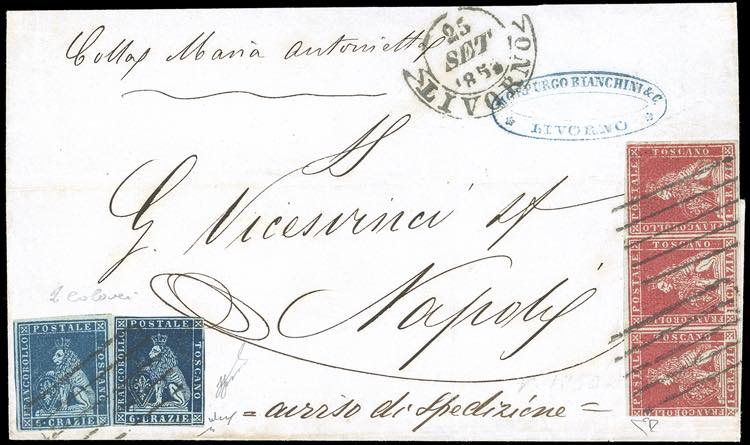 Colla Maria Antonietta
25
SET
185
LIVORNO
BIANCHINI & C.
LIVORNO
G.
Napoli
2 colori
= avviso di spedizione =
FRANCOBOLLO POSTALE TOSCANO
6·CRAZIE
FRANCOBOLLO POSTALE TOSCANO
6·CRAZIE
FRANCOBOLLO POSTALE TOSCANO
1·CRAZIA
FRANCOBOLLO POSTALE TOSCANO
1·CRAZIA
FRANCOBOLLO POSTALE TOSCANO
1·CRAZIA